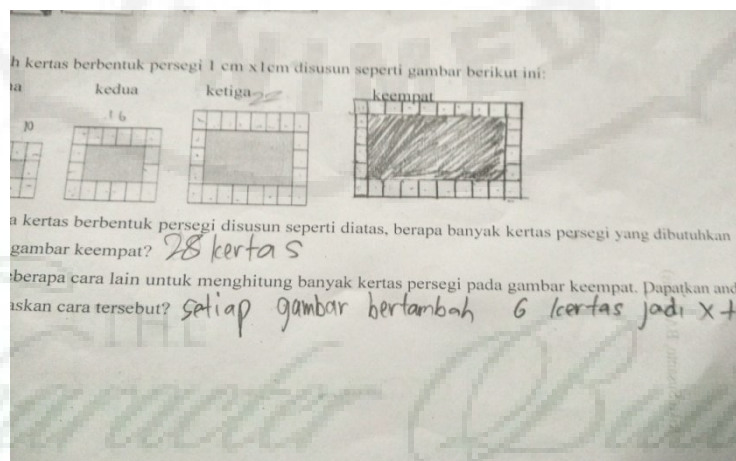 h kertas berbentuk persegi 1 cm x1cm disusun seperti gambar berikut ini:
a kedua ketiga keempat
10 16 22
a kertas berbentuk persegi disusun seperti diatas, berapa banyak kertas persegi yang dibutuhkan
gambar keempat? 28 kertas
berapa cara lain untuk menghitung banyak kertas persegi pada gambar keempat. Dapatkan and
askan cara tersebut? setiap gambar bertambah 6 kertas jadi x +